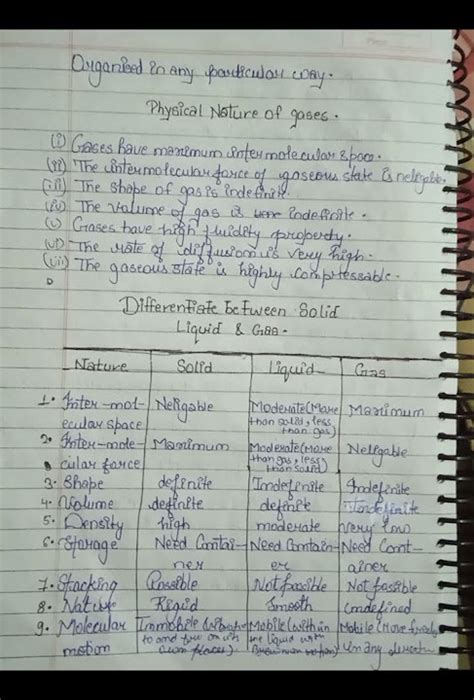 Organised in any particular way.
Physical Nature of gases.
(i) Gases have maximum intermolecular space.
(ii) The intermolecular force of gaseous state is neligable.
(iii) The shape of gas is indefinite.
(iv) The volume of gas is indefinite.
(v) Gases have high fluidity property.
(vi) The rate of diffusion is very high.
(vii) The gaseous state is highly compressable.
Differentiate between Solid
Liquid & Gas.
Nature Solid Liquid Gas
1. Inter-mol- Neligable Moderate (More Maximum
ecular space than solid, less
than gas)
2. Inter-mole- Maximum Moderate (more Neligable
cular force than gas, less
than solid)
3. Shape definite Indefinite Indefinite
4. Volume definite definite Indefinite
5. Density high moderate very low
6. Storage Need Contai- Need Contain- Need Cont-
ner er ainer
7. Stacking Possible Not possible Not possible
8. Nature Rigid Smooth undefined
9. Molecular Immobile (vibrate Mobile (within Mobile (Move freely
motion to and fro on its the liquid with in any direction
own places). Brownian motion)